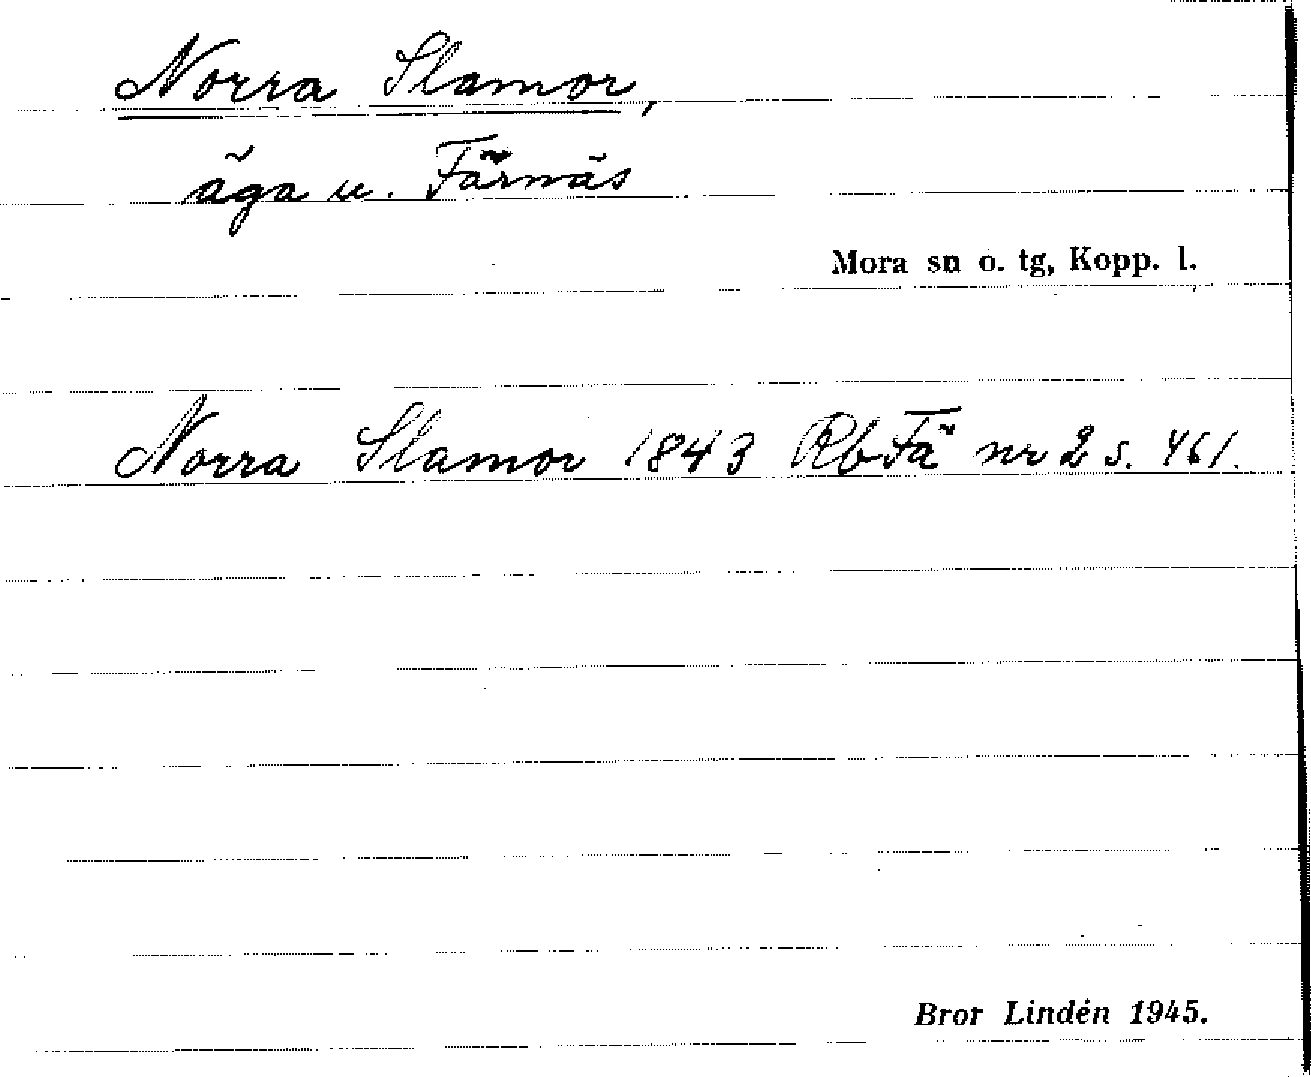 Norra Slamor,
äga u. Färnäs
Mora sn o. tg, Kopp. l.
Norra Slamor 1843 Rb Fä nr 2 s. 461.
Bror Lindén 1945.